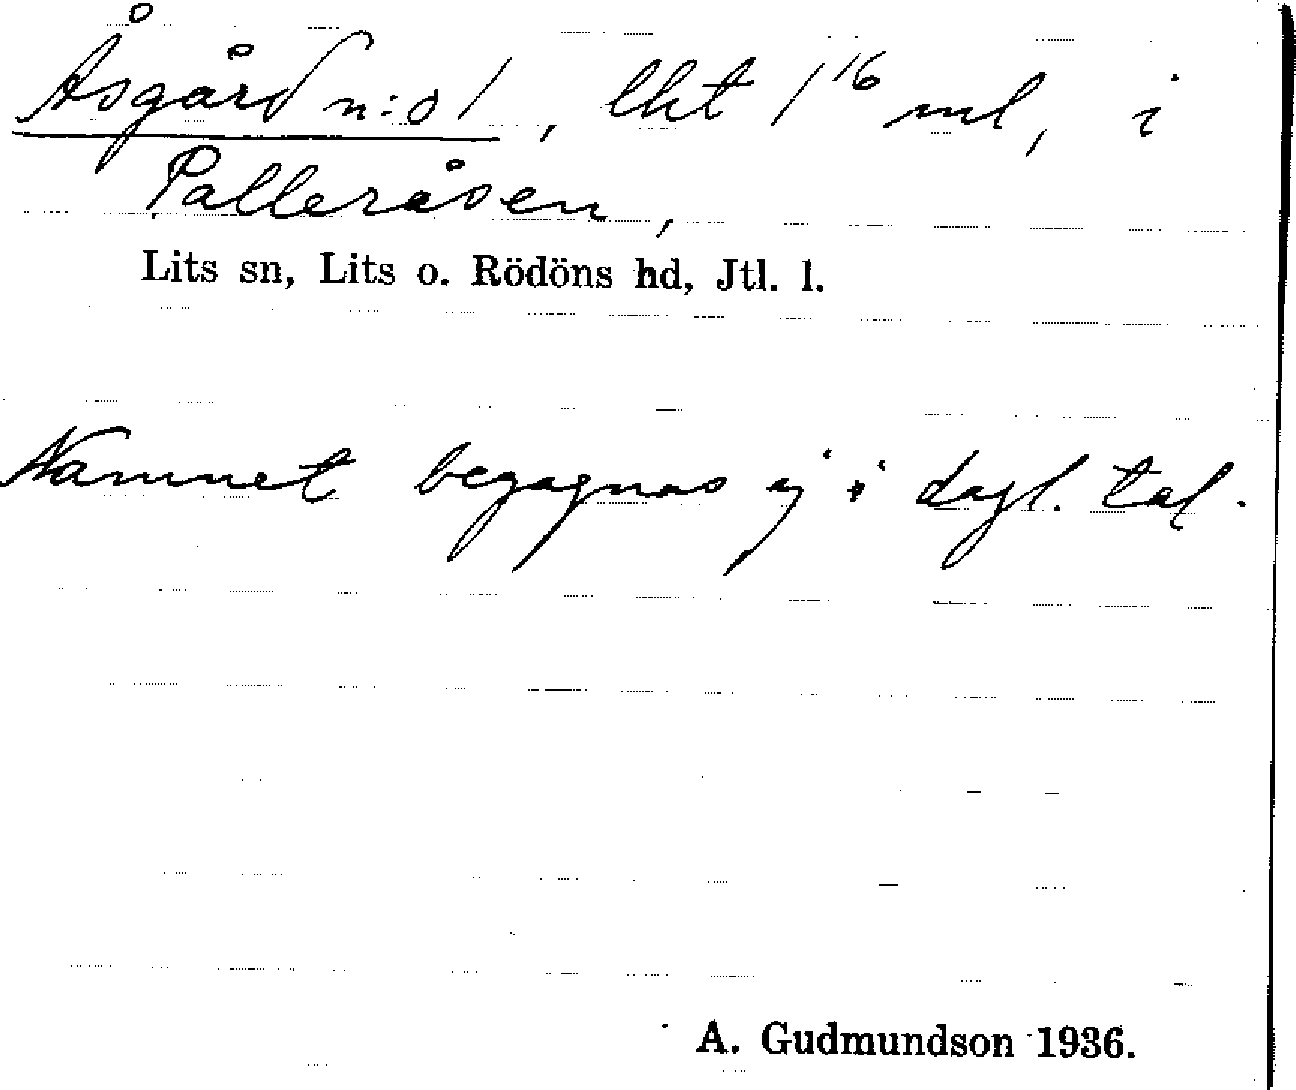 Åsgård n:o 1, lht 1/16 ml, i
Palleråsen,
Lits sn, Lits o. Rödöns hd, Jtl. l.
Namnet begagnas ej i dagl. tal.
A. Gudmundson 1936.